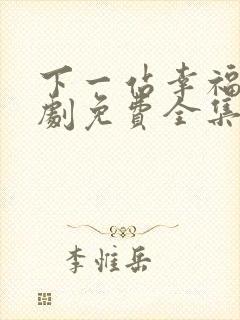 下一站幸福
劇免费全集
李惟岳